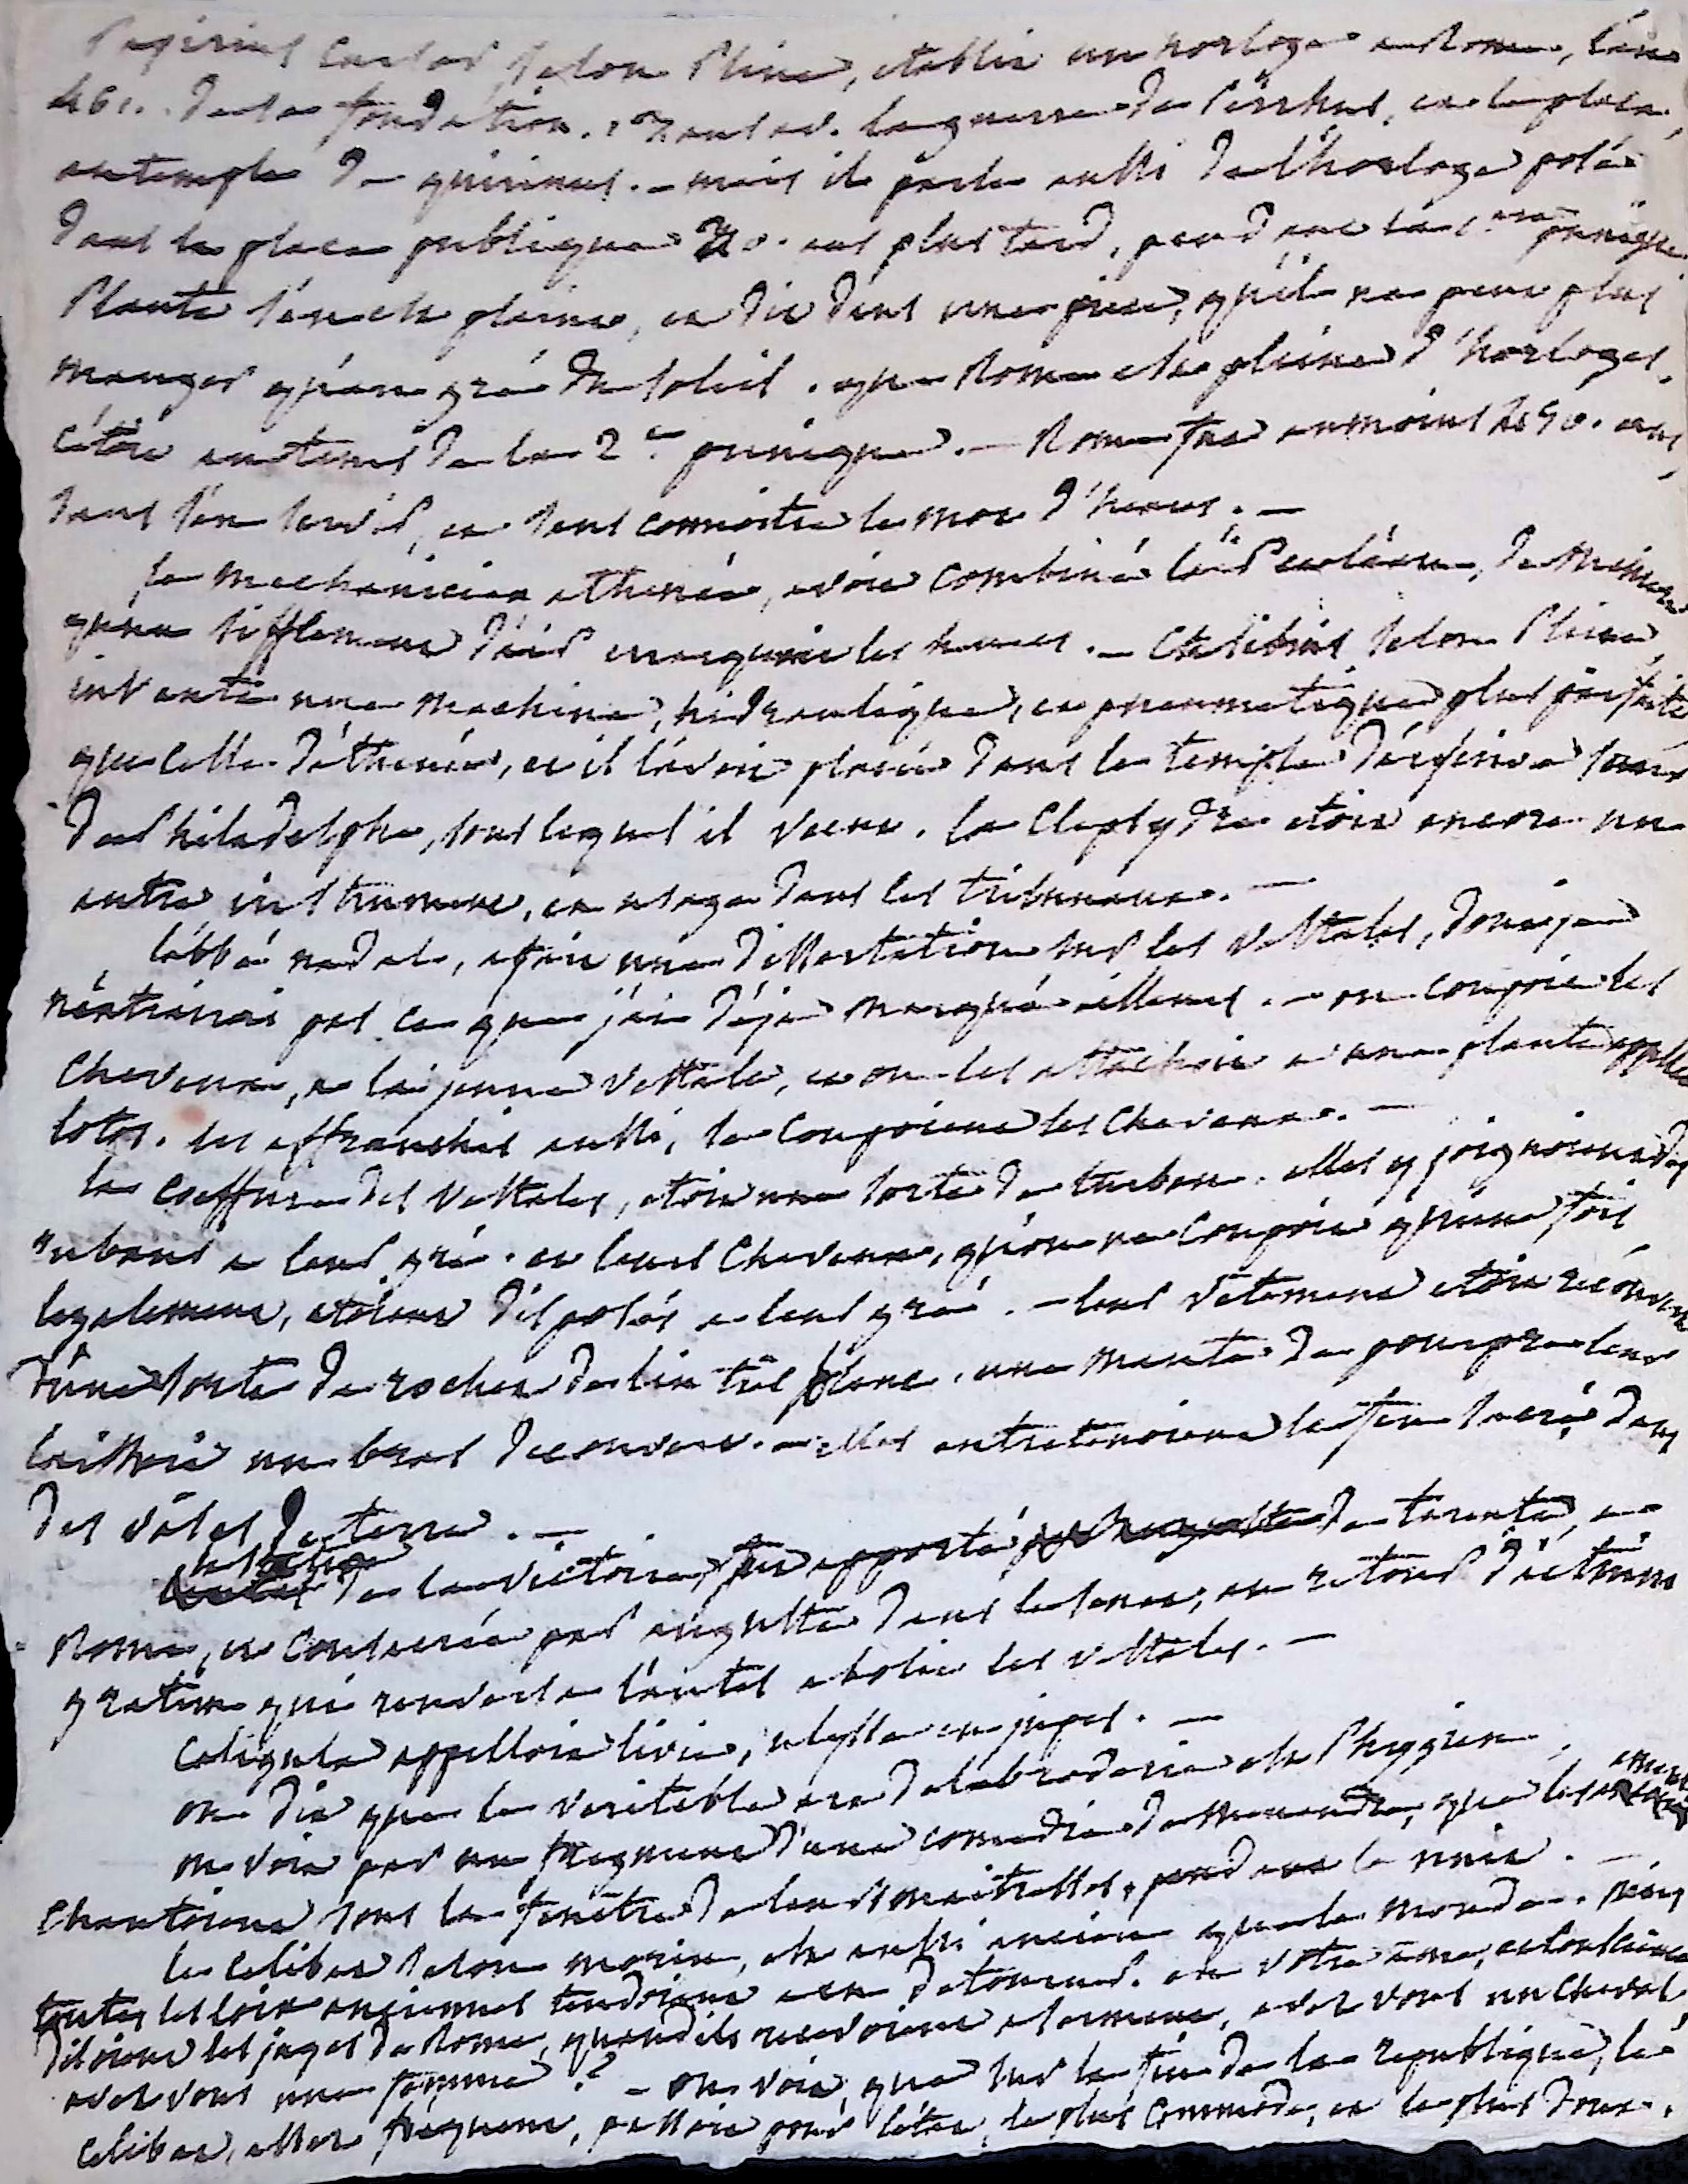 Papirius Cursor, selon Pline, etablit un horloge a Rome, l'an
461. de la fondation. 12 ans av. la guerre de Pirrhus, et le plaça
au temple de quirinus. - mais il parle aussi de l'horloge posé
dans la place publique 30. ans plus tard, pendant la 1ere punique.
Plaute s'en est plaint, et dit dans une piece, qu'il ne peut plus
manger qu'au gré du soleil. que Rome est pleine d'horloges,
c'étoit au tems de la 2e punique. - Rome fut au moins 450. ans
sans s'en servir, et sans connoitre le mot d'heures. -
le mechanicien athenée, avoit combiné l'air et l'eau, de maniere
qu'un sifflement d'air marquoit les heures. - Ctesibius selon Pline
inventa une machine, hidraulique, et pneumatique plus parfaite
que celle d'athenée, et il l'avoit placée dans le temple d'arsinoé soeur
de Philadelphe, sous lequel il vecut. la Clepsydre etoit encore un
autre instrument, en usage dans les tribunaux. -
l'abbé nadal, a fait une dissertation sur les vestales, dont je
n'extrairai pas ce que j'ai déja marqué ailleurs. - on coupoit les
cheveux, a la jeune vestale, et on les attachoit a une plante appellée
lotos. les affranchis aussi, se coupoient les cheveux. -
la coeffure des vestales, etoit une sorte de turban. elles y joignoient des
rubans a leur gré. et leurs cheveux, qu'on ne coupoit qu'une fois
legalement, etoient disposés a leur gré. - leur vetement etoit recouvert
d'une sorte de rochet de lin très blanc. une mante de pourpre leur
laissoit un bras decouvert. - elles entretenoient le feu sacré dans
des vases de terre. -
la statue de la victoire, fut apporté de tarente, a
Rome, et consacrée par auguste dans le senat, au retour d'actium
gratien qui renversa l'autel abolit les vestales. -
Caligula appelloit livie, ulysse en jupes. -
on dit que la veritable art de la broderie est Phrygien.
on voit par un fragment d'une comedie de Menandre, que les amants
chantoient sous la fenêtre de leurs maitresses, pendant la nuit. -
le celibat selon morin, est aussi ancien que le monde. mais
toutes les loix anciennes tendoient a en detourner. en votre ame, et conscience
disoient les juges de Rome, quand ils recevoient a serment, avez vous un cheval,
avez vous une femme? - on voit, que sur la fin de la republique, le
celibat, assez frequent, passoit pour l'état, le plus commode, et le plus doux.